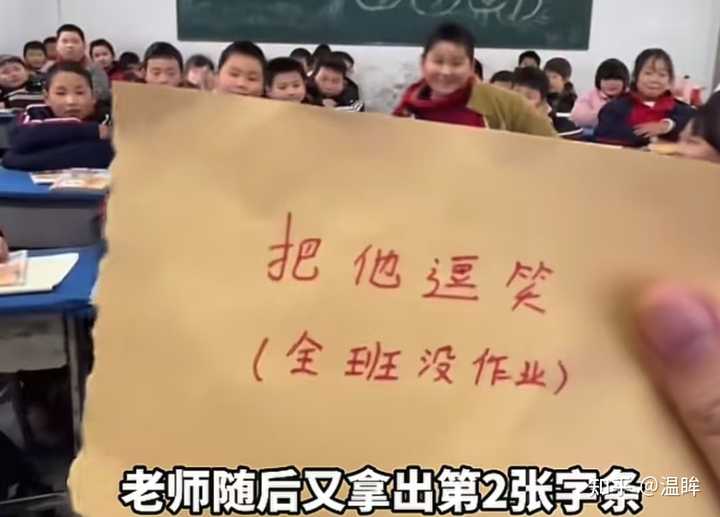 把他逗笑
(全班没作业)
老师随后又拿出第2张字条
知乎 @温眸